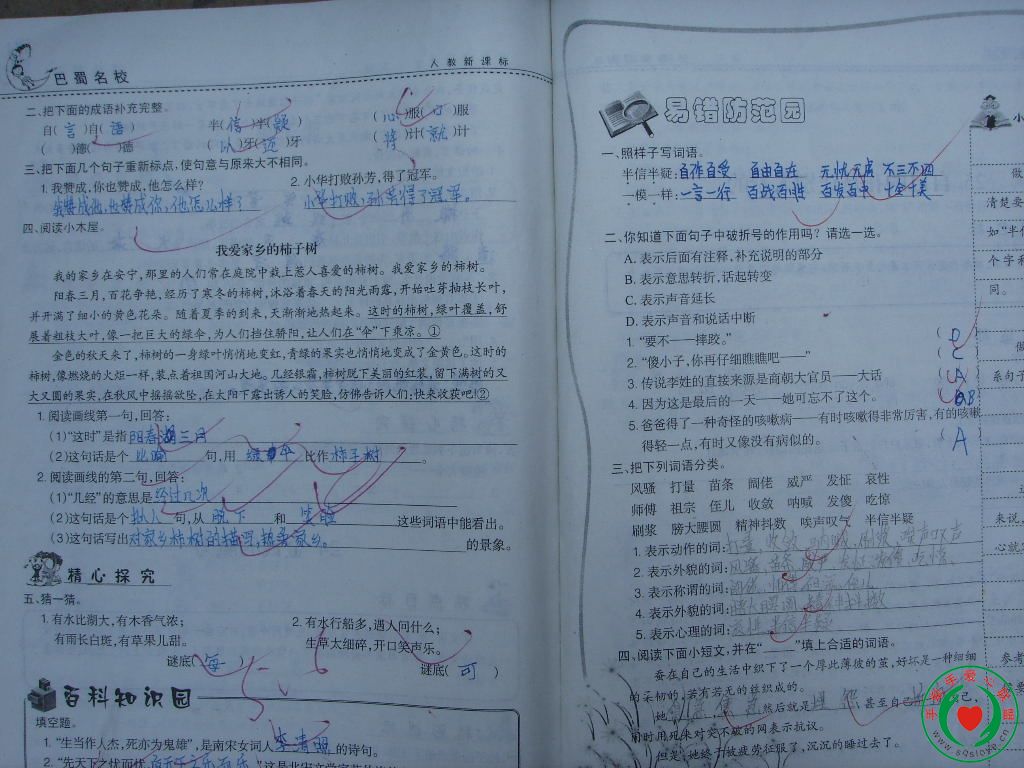 巴蜀名校
人教新课标
二、把下面的成语补充完整。
自(言)自(语) 半(信)半(疑) (心)服(口)服
( )德( )德 (以)牙(还)牙 (将)计(就)计
三、把下面几个句子重新标点,使句意与原来大不相同。
1. 我赞成,你也赞成,他怎么样? 2. 小华打败孙芳,得了冠军。
我赞成他,也赞成你,他怎么样? 小华打败,孙芳得了冠军。
四、阅读小木屋。
我爱家乡的柿子树
我的家乡在安宁,那里的人们常在庭院中栽上惹人喜爱的柿树。我爱家乡的柿树。
阳春三月,百花争艳,经历了寒冬的柿树,沐浴着春天的阳光雨露,开始吐芽抽枝长叶,
并开满了细小的黄色花朵。随着夏季的到来,天渐渐地热起来。这时的柿树,绿叶覆盖,舒
展着粗枝大叶,像一把巨大的绿伞,为人们挡住骄阳,让人们在“伞”下乘凉。①
金色的秋天来了,柿树的一身绿叶悄悄地变红,青绿的果实也悄悄地变成了金黄色。这时的
柿树,像燃烧的火炬一样,装点着祖国河山大地。几经银霜,柿树脱下美丽的红装,留下满树的又
大又圆的果实,在秋风中摇摇欲坠,在太阳下露出诱人的笑脸,仿佛告诉人们:快来收获吧!②
1. 阅读画线第一句,回答:
(1)“这时”是指阳春三月
(2)这句话是个比喻句,用绿伞比作柿子树。
2. 阅读画线的第二句,回答:
(1)“几经”的意思是经过几次
(2)这句话是个拟人句,从脱下和笑脸这些词语中能看出。
(3)这句话写出对家乡柿树的描写,热爱家乡。的景象。
精心探究
五、猜一猜。
1. 有水比湖大,有木香气浓; 2. 有水行船多,遇人问什么;
有雨长白斑,有草果儿甜。 生草太细碎,开口笑声乐。
谜底(每) 谜底(可)
百科知识园
填空题。
1. “生当作人杰,死亦为鬼雄”,是南宋女词人李清照的诗句。
2. “先天下之忧而忧,
易错防范园
一、照样子写词语。
半信半疑:自作自受 自由自在 无忧无虑 不三不四
一模一样:一言一行 百战百胜 百发百中 十全十美
二、你知道下面句子中破折号的作用吗?请选一选。
A. 表示后面有注释,补充说明的部分
B. 表示意思转折,话起转变
C. 表示声音延长
D. 表示声音和说话中断
1. “要不——摔跤。”
2. “傻小子,你再仔细瞧瞧吧——” (C
3. 传说李姓的直接来源是商朝大官员——大话 (A
4. 因为这是最后的一天——她可忘不了这个。
5. 爸爸得了一种奇怪的咳嗽病——有时咳嗽得非常厉害,有的咳嗽
得轻一点,有时又像没有病似的。 (A
三、把下列词语分类。
风骚 打量 苗条 阔佬 威严 发怔 哀怜
师傅 祖宗 侄儿 收敛 呐喊 发傻 吃惊
刷浆 膀大腰圆 精神抖数 唉声叹气 半信半疑
1. 表示动作的词:打量、收敛、呐喊、刷浆、唉声叹气
2. 表示外貌的词:风骚、苗条、威严
3. 表示称谓的词:
4. 表示外貌的词:膀大腰圆
5. 表示心理的词:
四、阅读下面小短文,并在“____”填上合适的词语。
蚕在自己的生活中织下了一个厚此薄彼的茧,好坏是一种细细
的采树的,若有若无的丝织成的。
她 然后就是埋怨,甚至自己
用时用死来对突不破的网表示抗议。
但是,她终于被疲劳征服了,沉沉的睡过去了。
小
做
清楚要
如“半
个字和
同。
做
系句子
来说,
心就
参考
手拉手爱心联盟